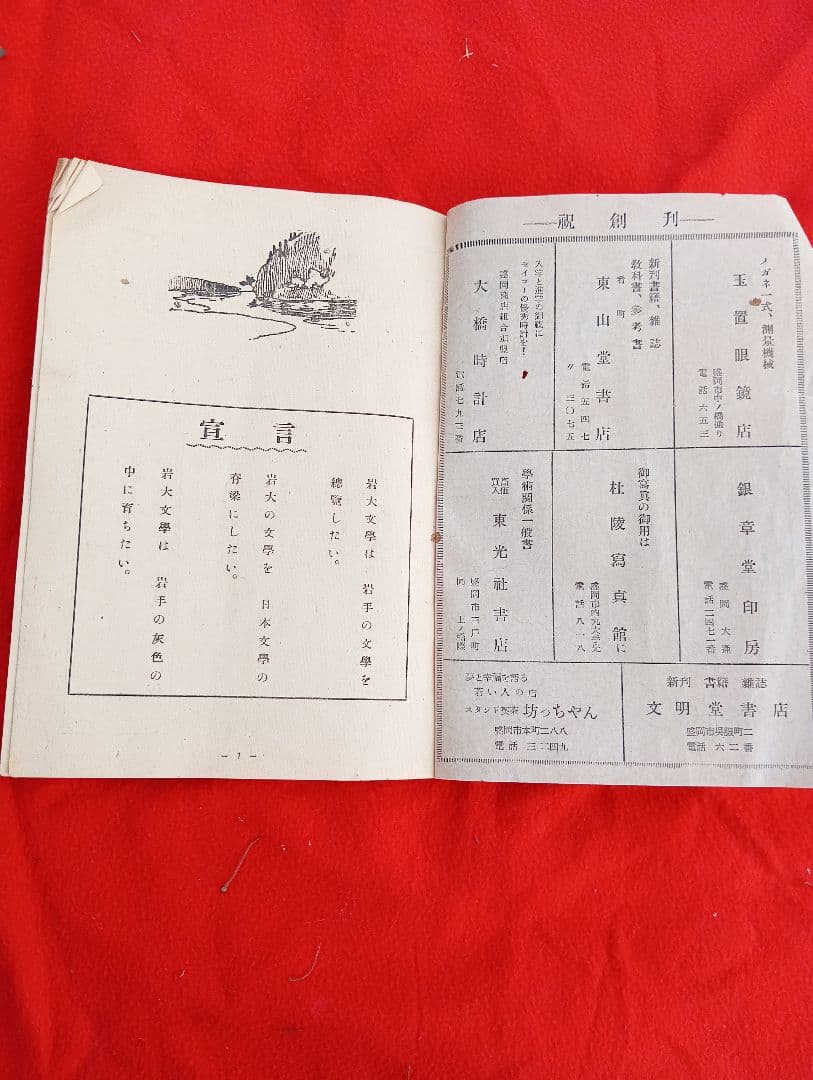 祝創刊
メガネ一式、測量機械
玉置眼鏡店
盛岡市中ノ橋通り
電話六五三
新刊書籍、雜誌
教科書、參考書
肴町
東山堂書店
電話五四七
〃三〇七五
入学と進学の御祝に
セイコーの優秀時計を!
大橋時計店
電話七九三番
銀章堂印房
盛岡大通
電話二四七一番
御寫真の御用は
杜陵寫真館に
電話八一八
學術關係一般書
高価買入
東光社書店
新刊 書籍 雜誌
文明堂書店
盛岡市呉服町二
電話 六二番
夢と幸福を語る
若い人の店
スタンド喫茶 坊っちゃん
盛岡市本町二八八
電話 三二四九
宣言
岩大文學は 岩手の文學を
總覽したい。
岩大の文學を 日本文學の
脊梁にしたい。
岩大文學は 岩手の灰色の
中に育ちたい。
— 1 —